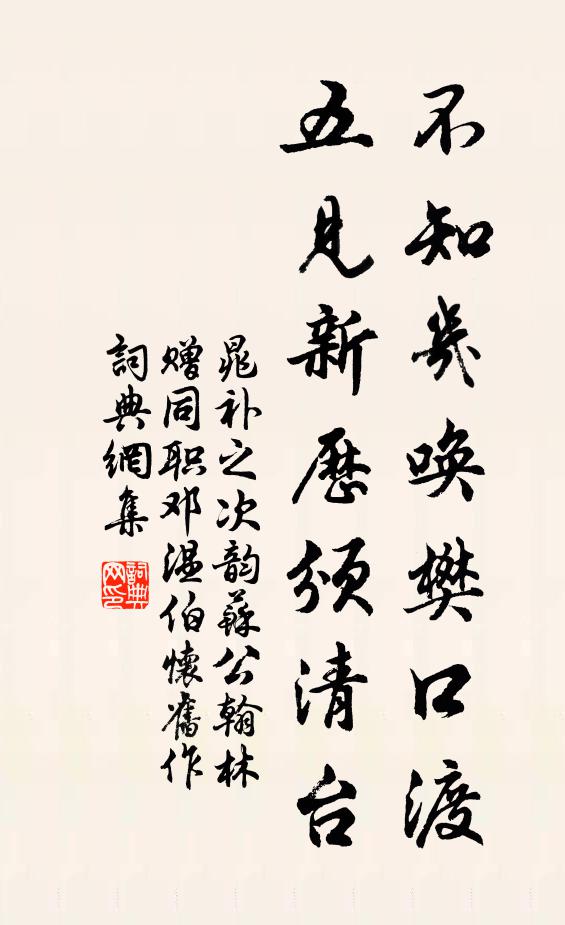 不知幾唤樊口渡
五見新歷頒清台
晁补之次韵蘇公翰林
赠同职邓温伯懷舊作
詞典網集
詞典网印